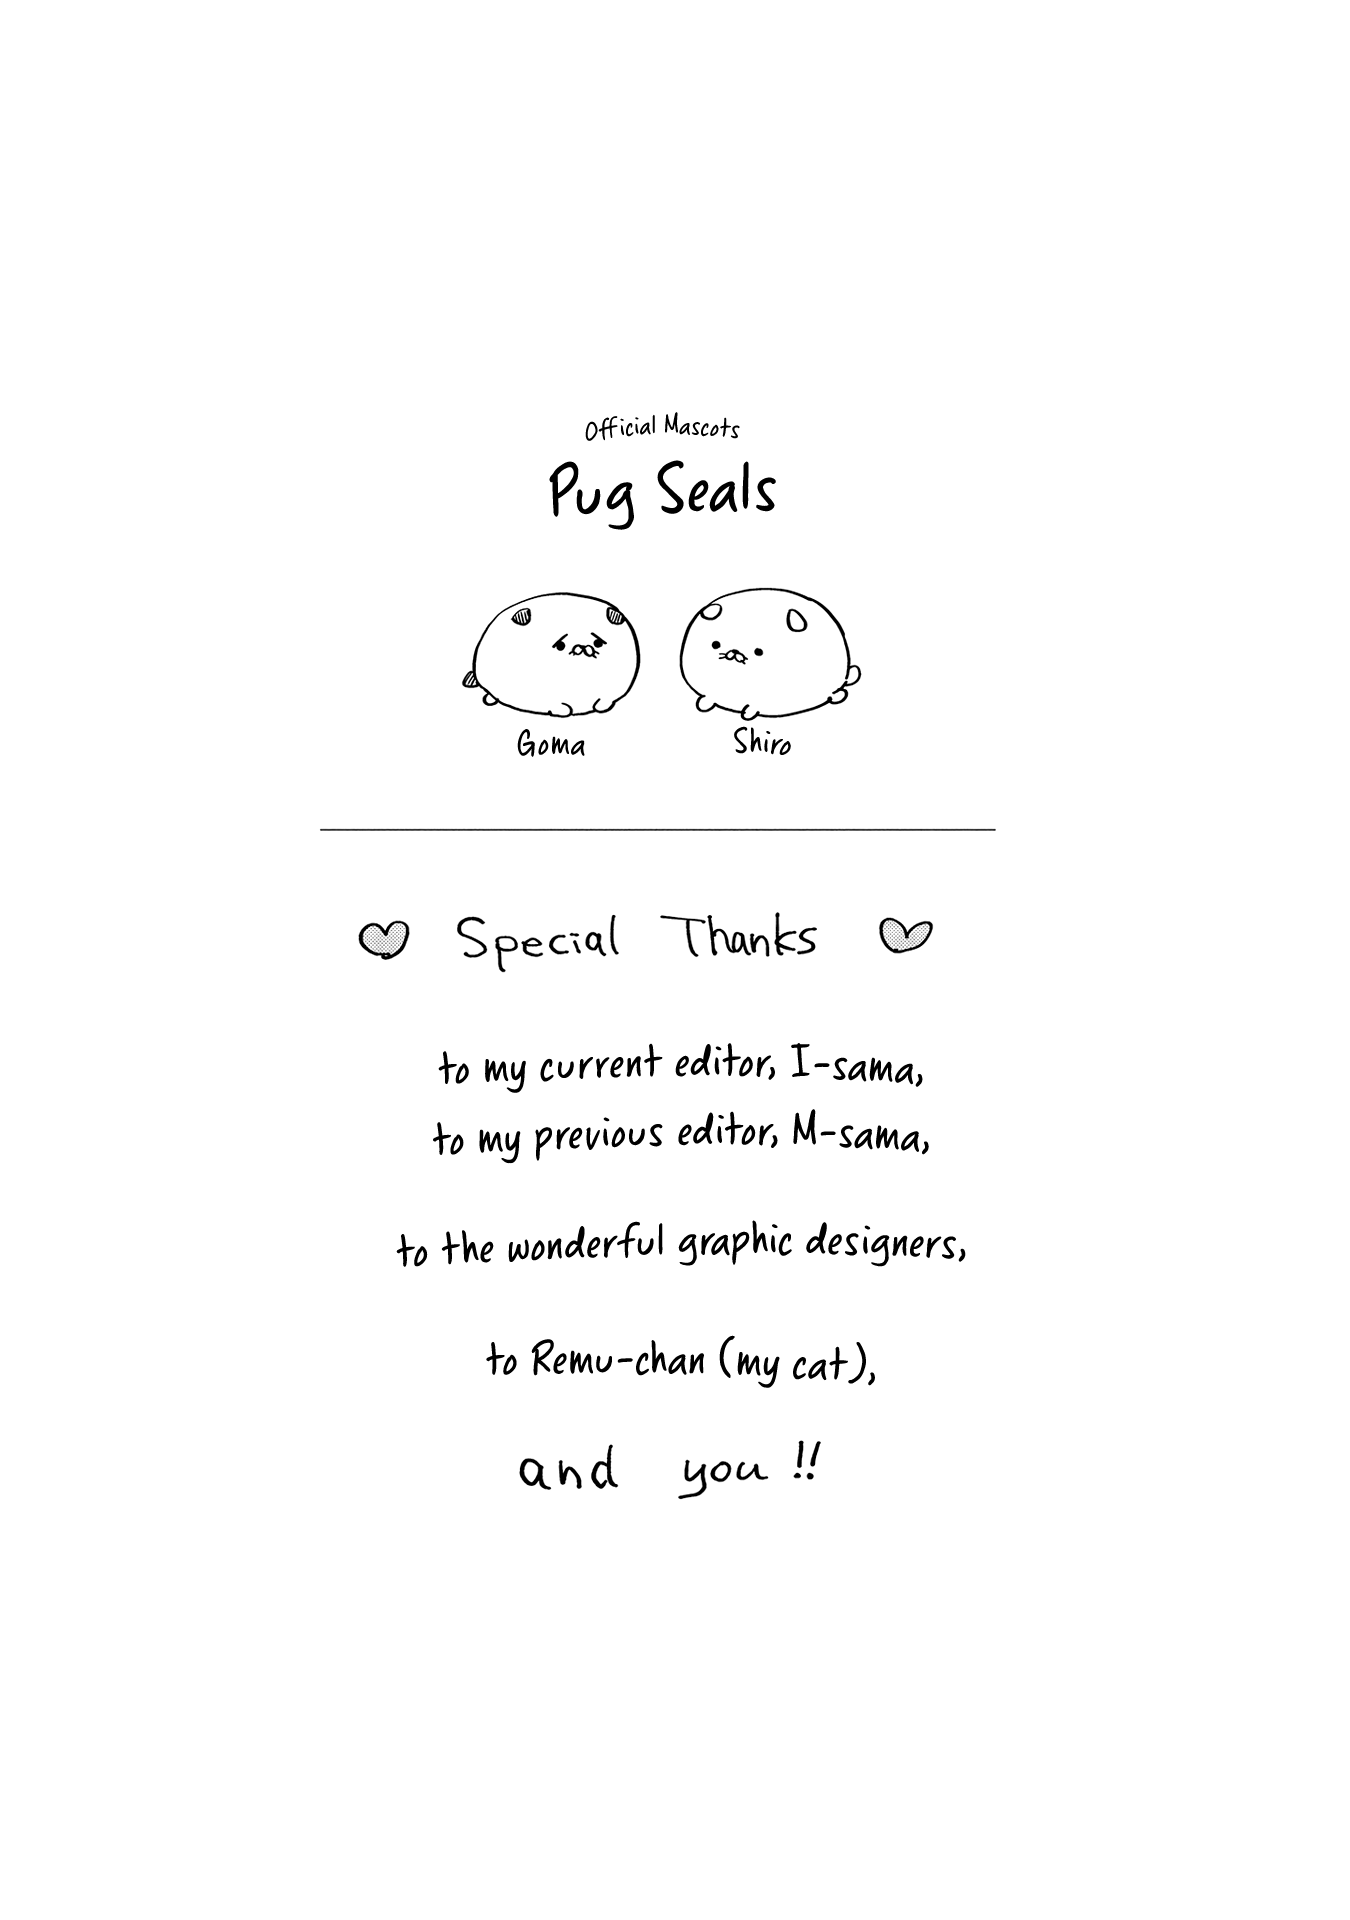 Official Mascots
Pug Seals
Goma
Shiro
Special Thanks
to my current editor, I-sama,
to my previous editor, M-sama,
to the wonderful graphic designers,
to Remu-chan (my cat),
and you!!